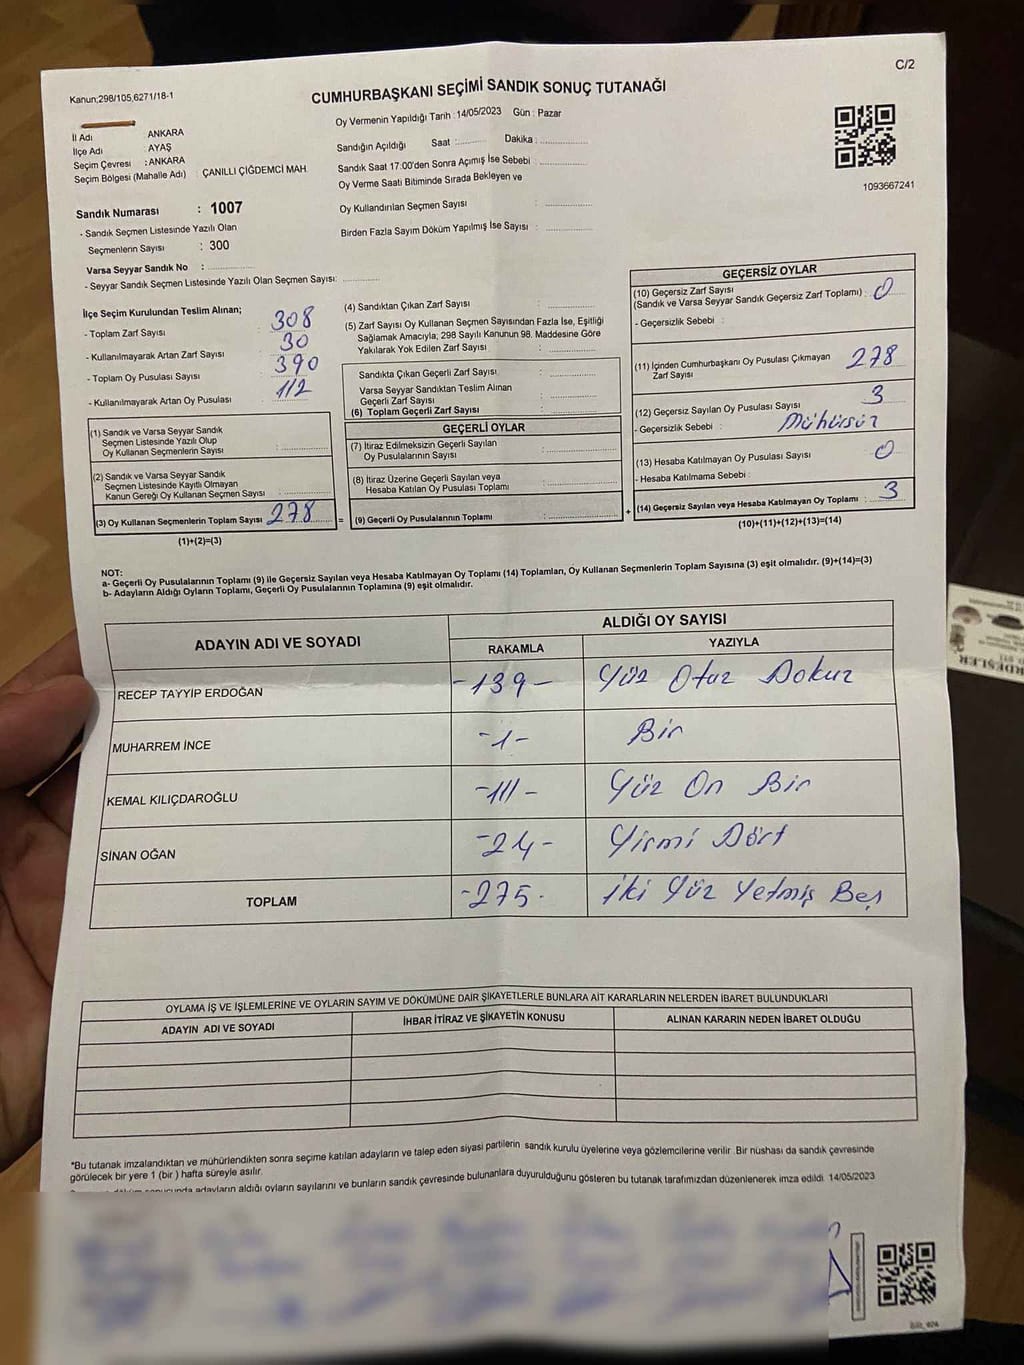 C/2
Kanun;298/105,6271/18-1
CUMHURBAŞKANI SEÇİMİ SANDIK SONUÇ TUTANAĞI
Oy Vermenin Yapıldığı Tarih : 14/05/2023 Gün : Pazar
İl Adı ANKARA
İlçe Adı : AYAŞ
Seçim Çevresi : ANKARA
Seçim Bölgesi (Mahalle Adı) : ÇANILLI ÇİĞDEMCİ MAH
Sandık Numarası : 1007
- Sandık Seçmen Listesinde Yazılı Olan
Seçmenlerin Sayısı : 300
Varsa Seyyar Sandık No :
- Seyyar Sandık Seçmen Listesinde Yazılı Olan Seçmen Sayısı:
Sandığın Açıldığı Saat : Dakika :
Sandık Saat 17:00'den Sonra Açımış İse Sebebi :
Oy Verme Saati Bitiminde Sırada Bekleyen ve
Oy Kullandırılan Seçmen Sayısı :
Birden Fazla Sayım Döküm Yapılmış İse Sayısı :
1093667241
İlçe Seçim Kurulundan Teslim Alınan;
- Toplam Zarf Sayısı : 308
- Kullanılmayarak Artan Zarf Sayısı : 30
- Toplam Oy Pusulası Sayısı : 390
- Kullanılmayarak Artan Oy Pusulası : 112
(1) Sandık ve Varsa Seyyar Sandık
Seçmen Listesinde Yazılı Olup
Oy Kullanan Seçmenlerin Sayısı :
(2) Sandık ve Varsa Seyyar Sandık
Seçmen Listesinde Kayıtlı Olmayan
Kanun Gereği Oy Kullanan Seçmen Sayısı :
(3) Oy Kullanan Seçmenlerin Toplam Sayısı : 278
(1)+(2)=(3)
(4) Sandıktan Çıkan Zarf Sayısı :
(5) Zarf Sayısı Oy Kullanan Seçmen Sayısından Fazla İse, Eşitliği
Sağlamak Amacıyla; 298 Sayılı Kanunun 98. Maddesine Göre
Yakılarak Yok Edilen Zarf Sayısı :
Sandıkta Çıkan Geçerli Zarf Sayısı :
Varsa Seyyar Sandıktan Teslim Alınan
Geçerli Zarf Sayısı :
(6) Toplam Geçerli Zarf Sayısı :
GEÇERLİ OYLAR
(7) İtiraz Edilmeksizin Geçerli Sayılan
Oy Pusulalarının Sayısı :
(8) İtiraz Üzerine Geçerli Sayılan veya
Hesaba Katılan Oy Pusulası Toplamı :
= (9) Geçerli Oy Pusulalarının Toplamı :
GEÇERSİZ OYLAR
(10) Geçersiz Zarf Sayısı
(Sandık ve Varsa Seyyar Sandık Geçersiz Zarf Toplamı) : 0
- Geçersizlik Sebebi :
(11) İçinden Cumhurbaşkanı Oy Pusulası Çıkmayan
Zarf Sayısı 278
(12) Geçersiz Sayılan Oy Pusulası Sayısı : 3
- Geçersizlik Sebebi : Mühürsüz
(13) Hesaba Katılmayan Oy Pusulası Sayısı : 0
- Hesaba Katılmama Sebebi :
+ (14) Geçersiz Sayılan veya Hesaba Katılmayan Oy Toplamı : 3
(10)+(11)+(12)+(13)=(14)
NOT:
a- Geçerli Oy Pusulalarının Toplamı (9) ile Geçersiz Sayılan veya Hesaba Katılmayan Oy Toplamı (14) Toplamları, Oy Kullanan Seçmenlerin Toplam Sayısına (3) eşit olmalıdır. (9)+(14)=(3)
b- Adayların Aldığı Oyların Toplamı, Geçerli Oy Pusulalarının Toplamına (9) eşit olmalıdır.
ADAYIN ADI VE SOYADI
ALDIĞI OY SAYISI
RAKAMLA YAZIYLA
RECEP TAYYİP ERDOĞAN -139- Yüz Otuz Dokuz
MUHARREM İNCE -1- Bir
KEMAL KILIÇDAROĞLU -111- Yüz On Bir
SİNAN OĞAN -24- Yirmi Dört
TOPLAM -275- İki Yüz Yetmiş Beş
OYLAMA İŞ VE İŞLEMLERİNE VE OYLARIN SAYIM VE DÖKÜMÜNE DAİR ŞİKAYETLERLE BUNLARA AİT KARARLARIN NELERDEN İBARET BULUNDUKLARI
ADAYIN ADI VE SOYADI İHBAR İTİRAZ VE ŞİKAYETİN KONUSU ALINAN KARARIN NEDEN İBARET OLDUĞU
*Bu tutanak imzalandıktan ve mühürlendikten sonra seçime katılan adayların ve talep eden siyasi partilerin sandık kurulu üyelerine veya gözlemcilerine verilir. Bir nüshası da sandık çevresinde
görülecek bir yere 1 (bir ) hafta süreyle asılır.
adayların aldığı oyların sayılarını ve bunların sandık çevresinde bulunanlara duyurulduğunu gösteren bu tutanak tarafımızdan düzenlenerek imza edildi. 14/05/2023